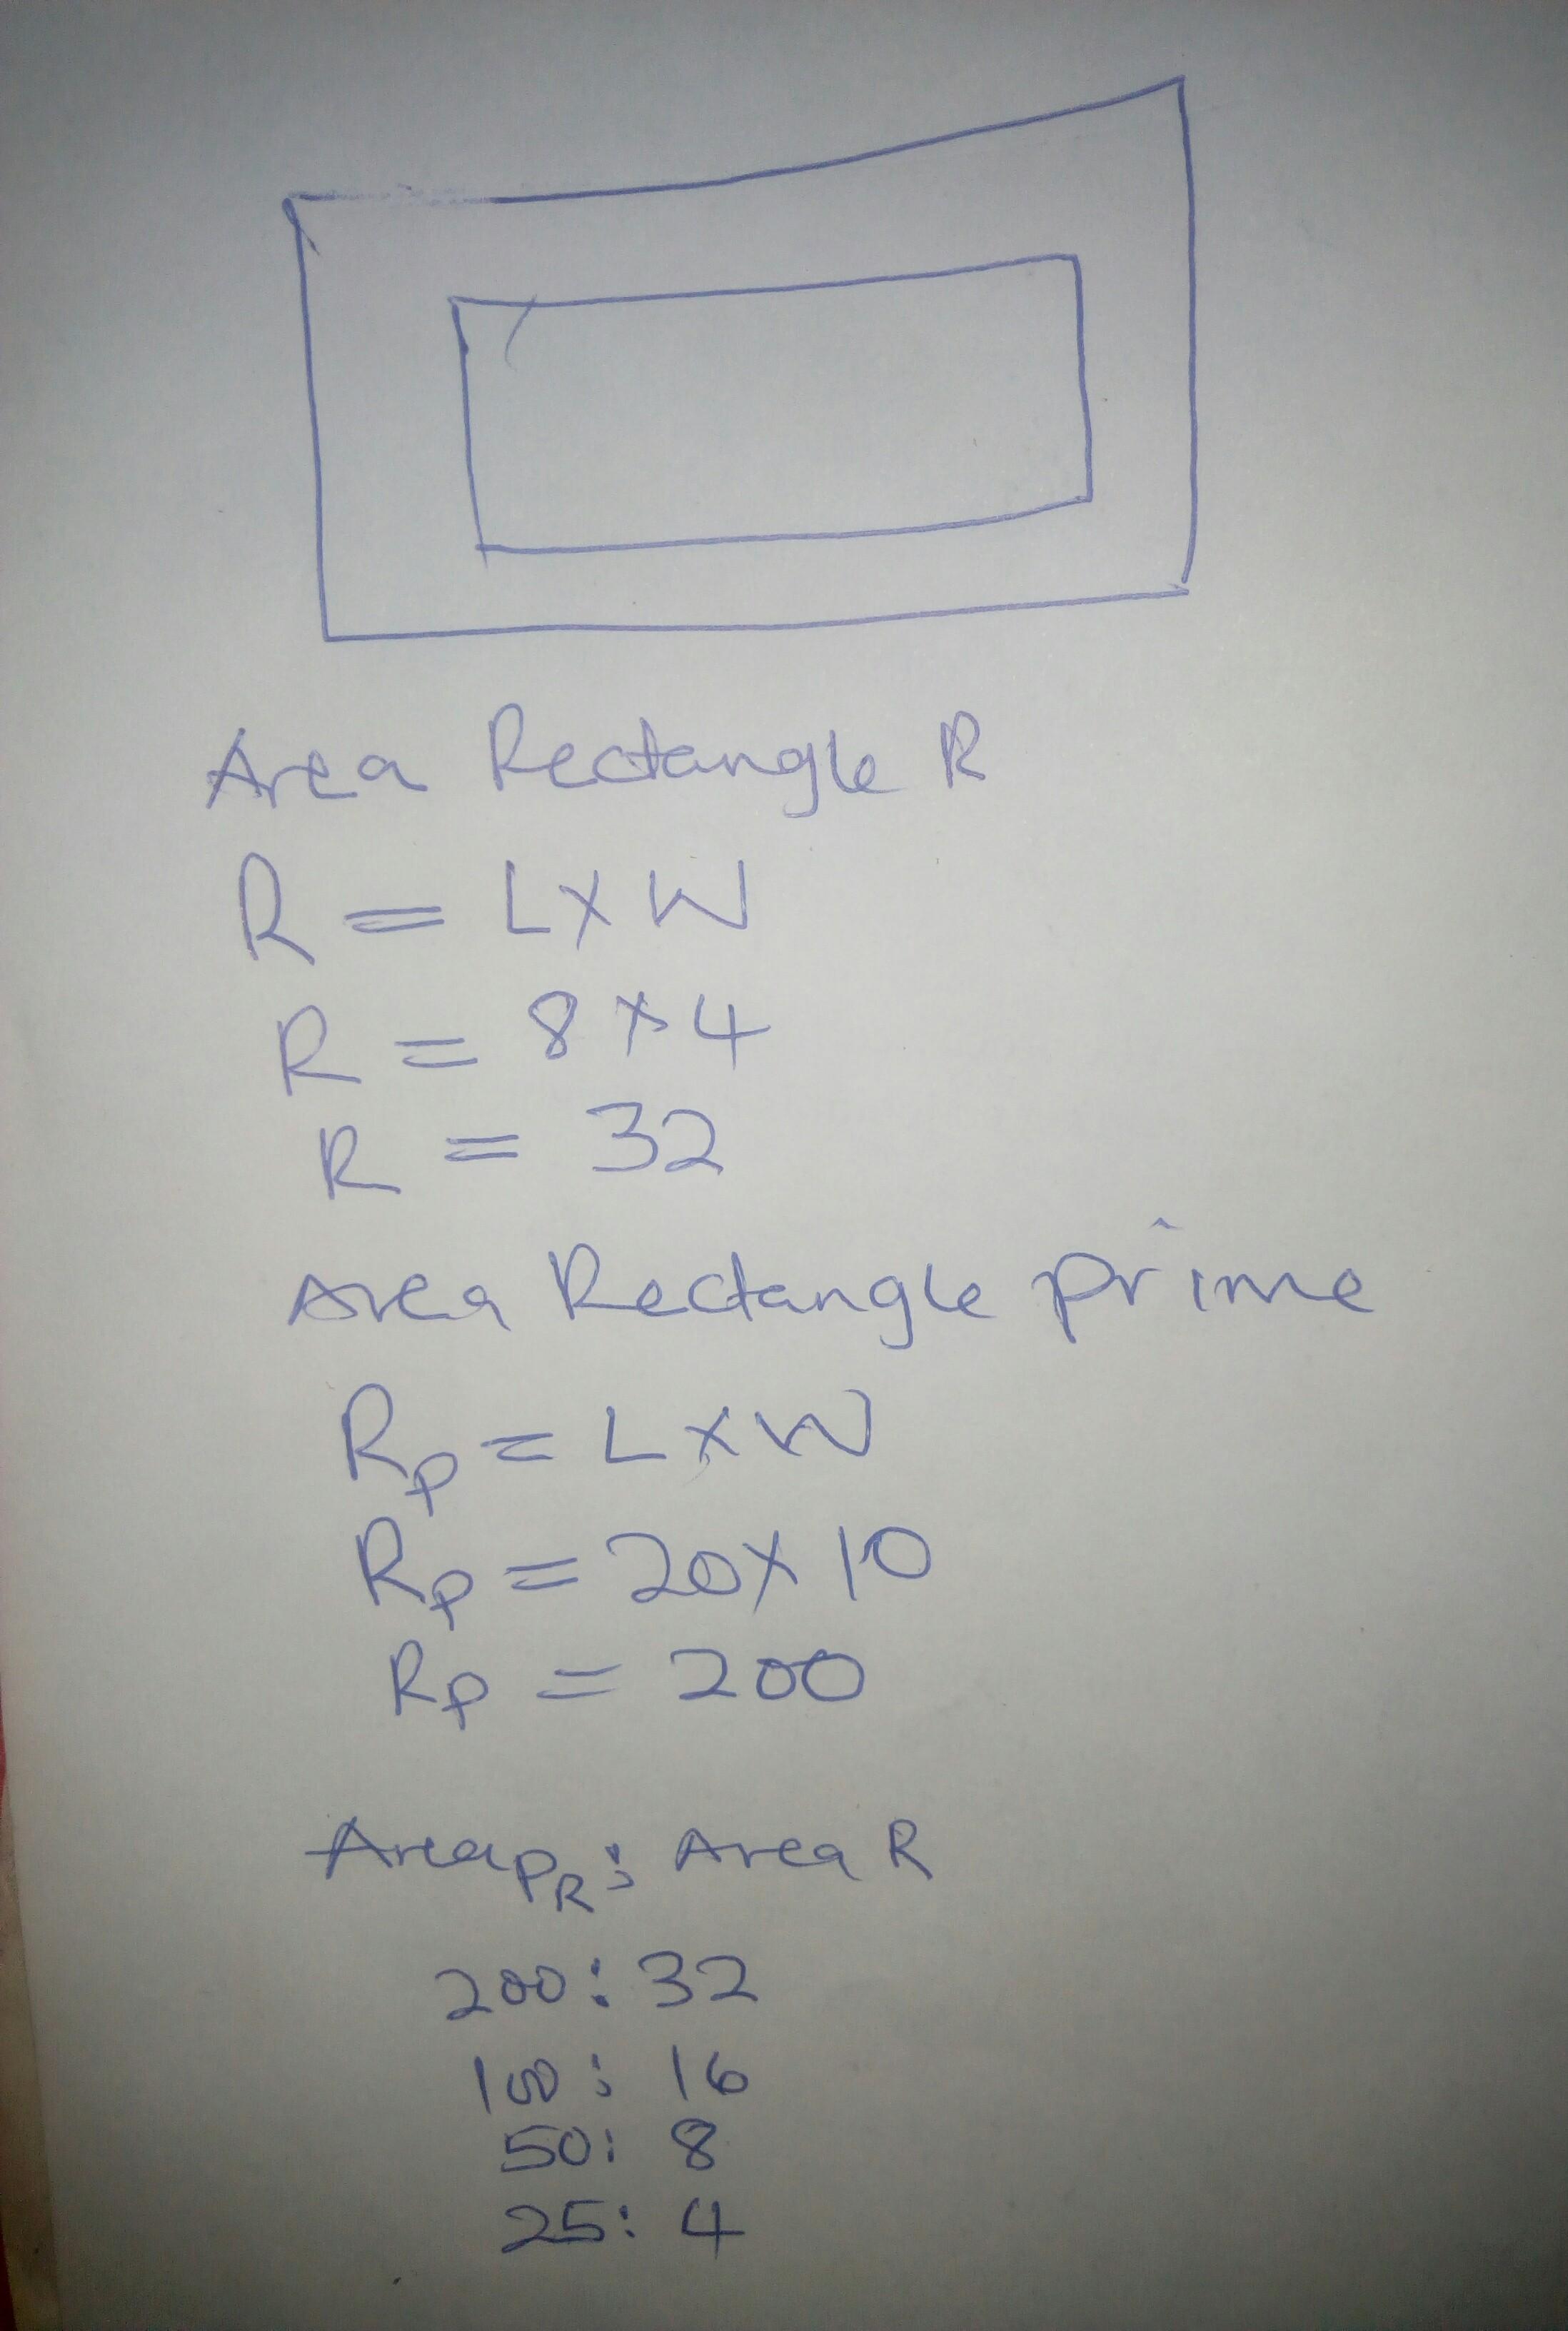 Area Rectangle R
R = L x W
R = 8 x 4
R = 32
Area Rectangle prime
Rp = L x W
Rp = 20 x 10
Rp = 200
Area PR : Area R
200 : 32
100 : 16
50 : 8
25 : 4